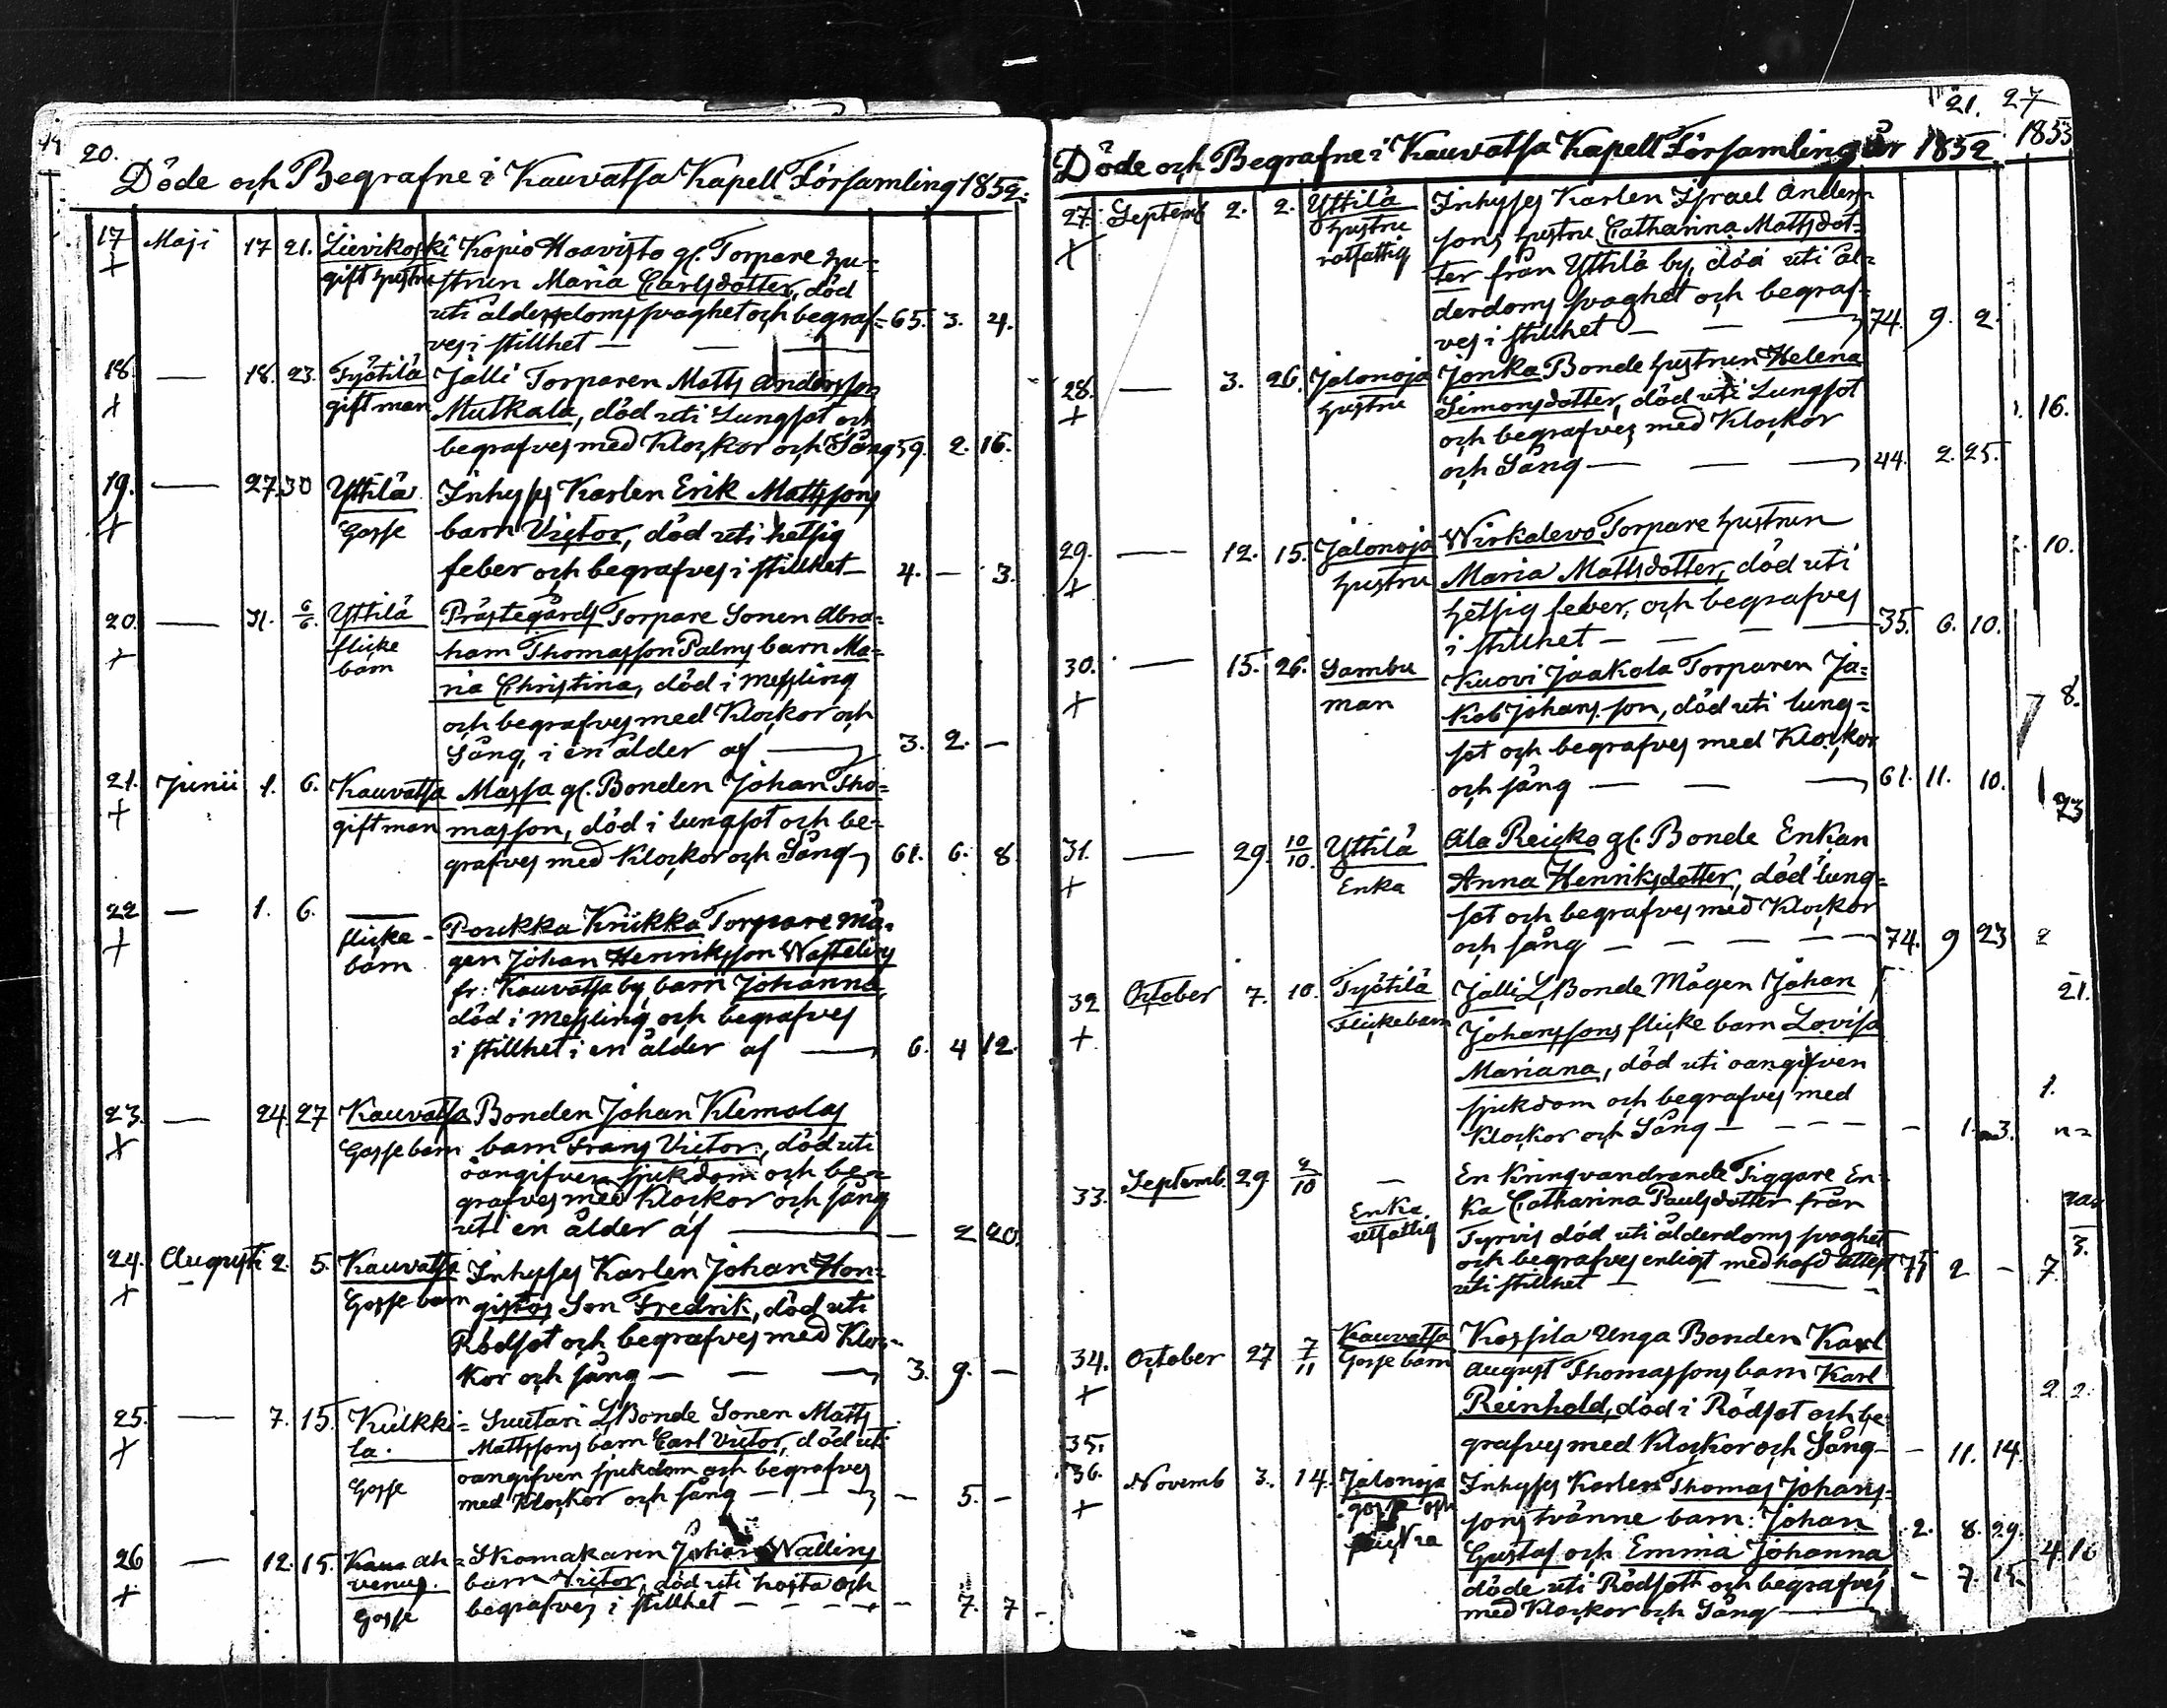 20.
Döde och Begrafne i Kauvatsa Kapell Församling 1852.
17 Maji 17 21. Lievikoski Kopio Haavisto gl. Torpare hu=
+ gift hustru strun Maria Carlsdotter, död
uti ålderdoms svaghet och begraf= 65. 3. 4.
ves i stillhet — — —
18. — 18. 23. Työtilä Jalli Torparen Matts Andersson
+ gift man Mutkala, död uti Lungsot och
begrafves med Klockor och Sång 59. 2. 16.
19. — 27. 30 Yttilä Inhyses Karlen Erik Mattssons
+ Gosse barn Victor, död uti hetsig
feber och begrafves i stillhet — 4. — 3.
20. — 31. 6/6. Yttilä Prästegårds Torpare Sonen Abra=
+ flicke ham Thomasson Palms barn Ma=
barn ria Christina, död i Messling
och begrafves med Klockor och
Sång, i en ålder af — 3. 2. —
21. Junii 1. 6. Kauvatsa Massa gl. Bonden Johan Tho=
+ gift man masson, död i lungsot och be=
grafves med Klockor och Sång 61. 6. 8
22 — 1. 6. — Poukka Kriikka Torpare Må=
+ flicke- gen Johan Henriksson Wastelins
barn fr: Kauvatsa by, barn Johanna,
död i Messling och begrafves
i stillhet i en ålder af — 6. 4 12.
23. — 24. 27 Kauvatsa Bonden Johan Klemolas
+ Gosse barn barn Frans Victor, död uti
oangifven sjukdom och be=
grafves med Klockor och sång
uti en ålder af — — 2 20.
24. Augusti 2. 5. Kauvatsa Inhyses Karlen Johan Hon=
+ Gosse barn gistos Son Fredrik, död uti
Rödsot och begrafves med Kloc=
kor och sång — — — 3. 9. —
25. — 7. 15. Kulkki= Suutari L Bonde Sonen Matts
+ la. Mattssons barn Carl Victor, död uti
Gosse oangifven sjukdom och begrafves
med Klockor och sång — — — 5. —
26 — 12. 15. ah= Skomakaren Johan Wallins
+ venus. barn Victor, död uti hosta och
Gosse begrafves i stillhet — — — 7. 7
21. 27
Döde och Begrafne i Kauvatsa Kapell Församling år 1852. 1853
27. Septemb 2. 2. Yttilä Inhyses Karlen Israel Anders=
+ hustru sons hustru Catharina Mattsdot=
ter från Yttilä by, död uti ål=
derdoms svaghet och begraf=
ves i stillhet — — — 74. 9. 2.
28. — 3. 26. Jalonoja Jonka Bonde hustrun Helena
+ hustru Simonsdotter, död uti Lungsot
16.
och begrafves med Klockor
och Sång — — — 44. 2. 25.
29. — 12. 15. Jalonoja Wirkalevo Torpare hustrun
10.
+ hustru Maria Mattsdotter, död uti
hetsig feber, och begrafves
i stillhet — — — 35. 6. 10.
30. — 15. 26. Sambu Kuovi Jaakola Torparen Ja=
+ man kob Johansson, död uti lung=
8.
sot och begrafves med Klockor
och sång — — — 61. 11. 10.
23
31. — 29. 10/10. Yttilä Ala Reicko gl. Bonde Enkan
+ Enka Anna Henriksdotter, död lung=
sot och begrafves med Klockor
och sång — — — 74. 9 23 2
32 October 7. 10. Työtilä Jalli L Bonde Mågen Johan
21.
+ Flickebarn Johanssons flicke barn Lovisa
Mariana, död uti oangifven
sjukdom och begrafves med
1.
Klockor och Sång — — — 1. 3.
33. Septemb. 29. 2/10 — En Kringvandrande Tiggare En=
Enka. ka Catharina Paulsdotter från
utfattig Tyrvis död uti ålderdoms svaghet
3.
och begrafves enligt medhafd attest 75 2 — 7.
uti stillhet — — —
34. October 27 7/11 Kauvatsa Kossila Unga Bonden Karl
+ Gosse barn August Thomassons barn Karl
Reinhold, död i Rödsot och be=
2 2.
35. grafves med Klockor och Sång — — 11. 14.
36. Novemb 3. 14. Jalonoja Inhyses Karlen Thomas Johans=
+ sons tvänne barn: Johan
Gustaf och Emma Johanna 2. 8. 29.
4 16
döde uti Rödsott och begrafves — 7. 15.
med Klockor och Sång —